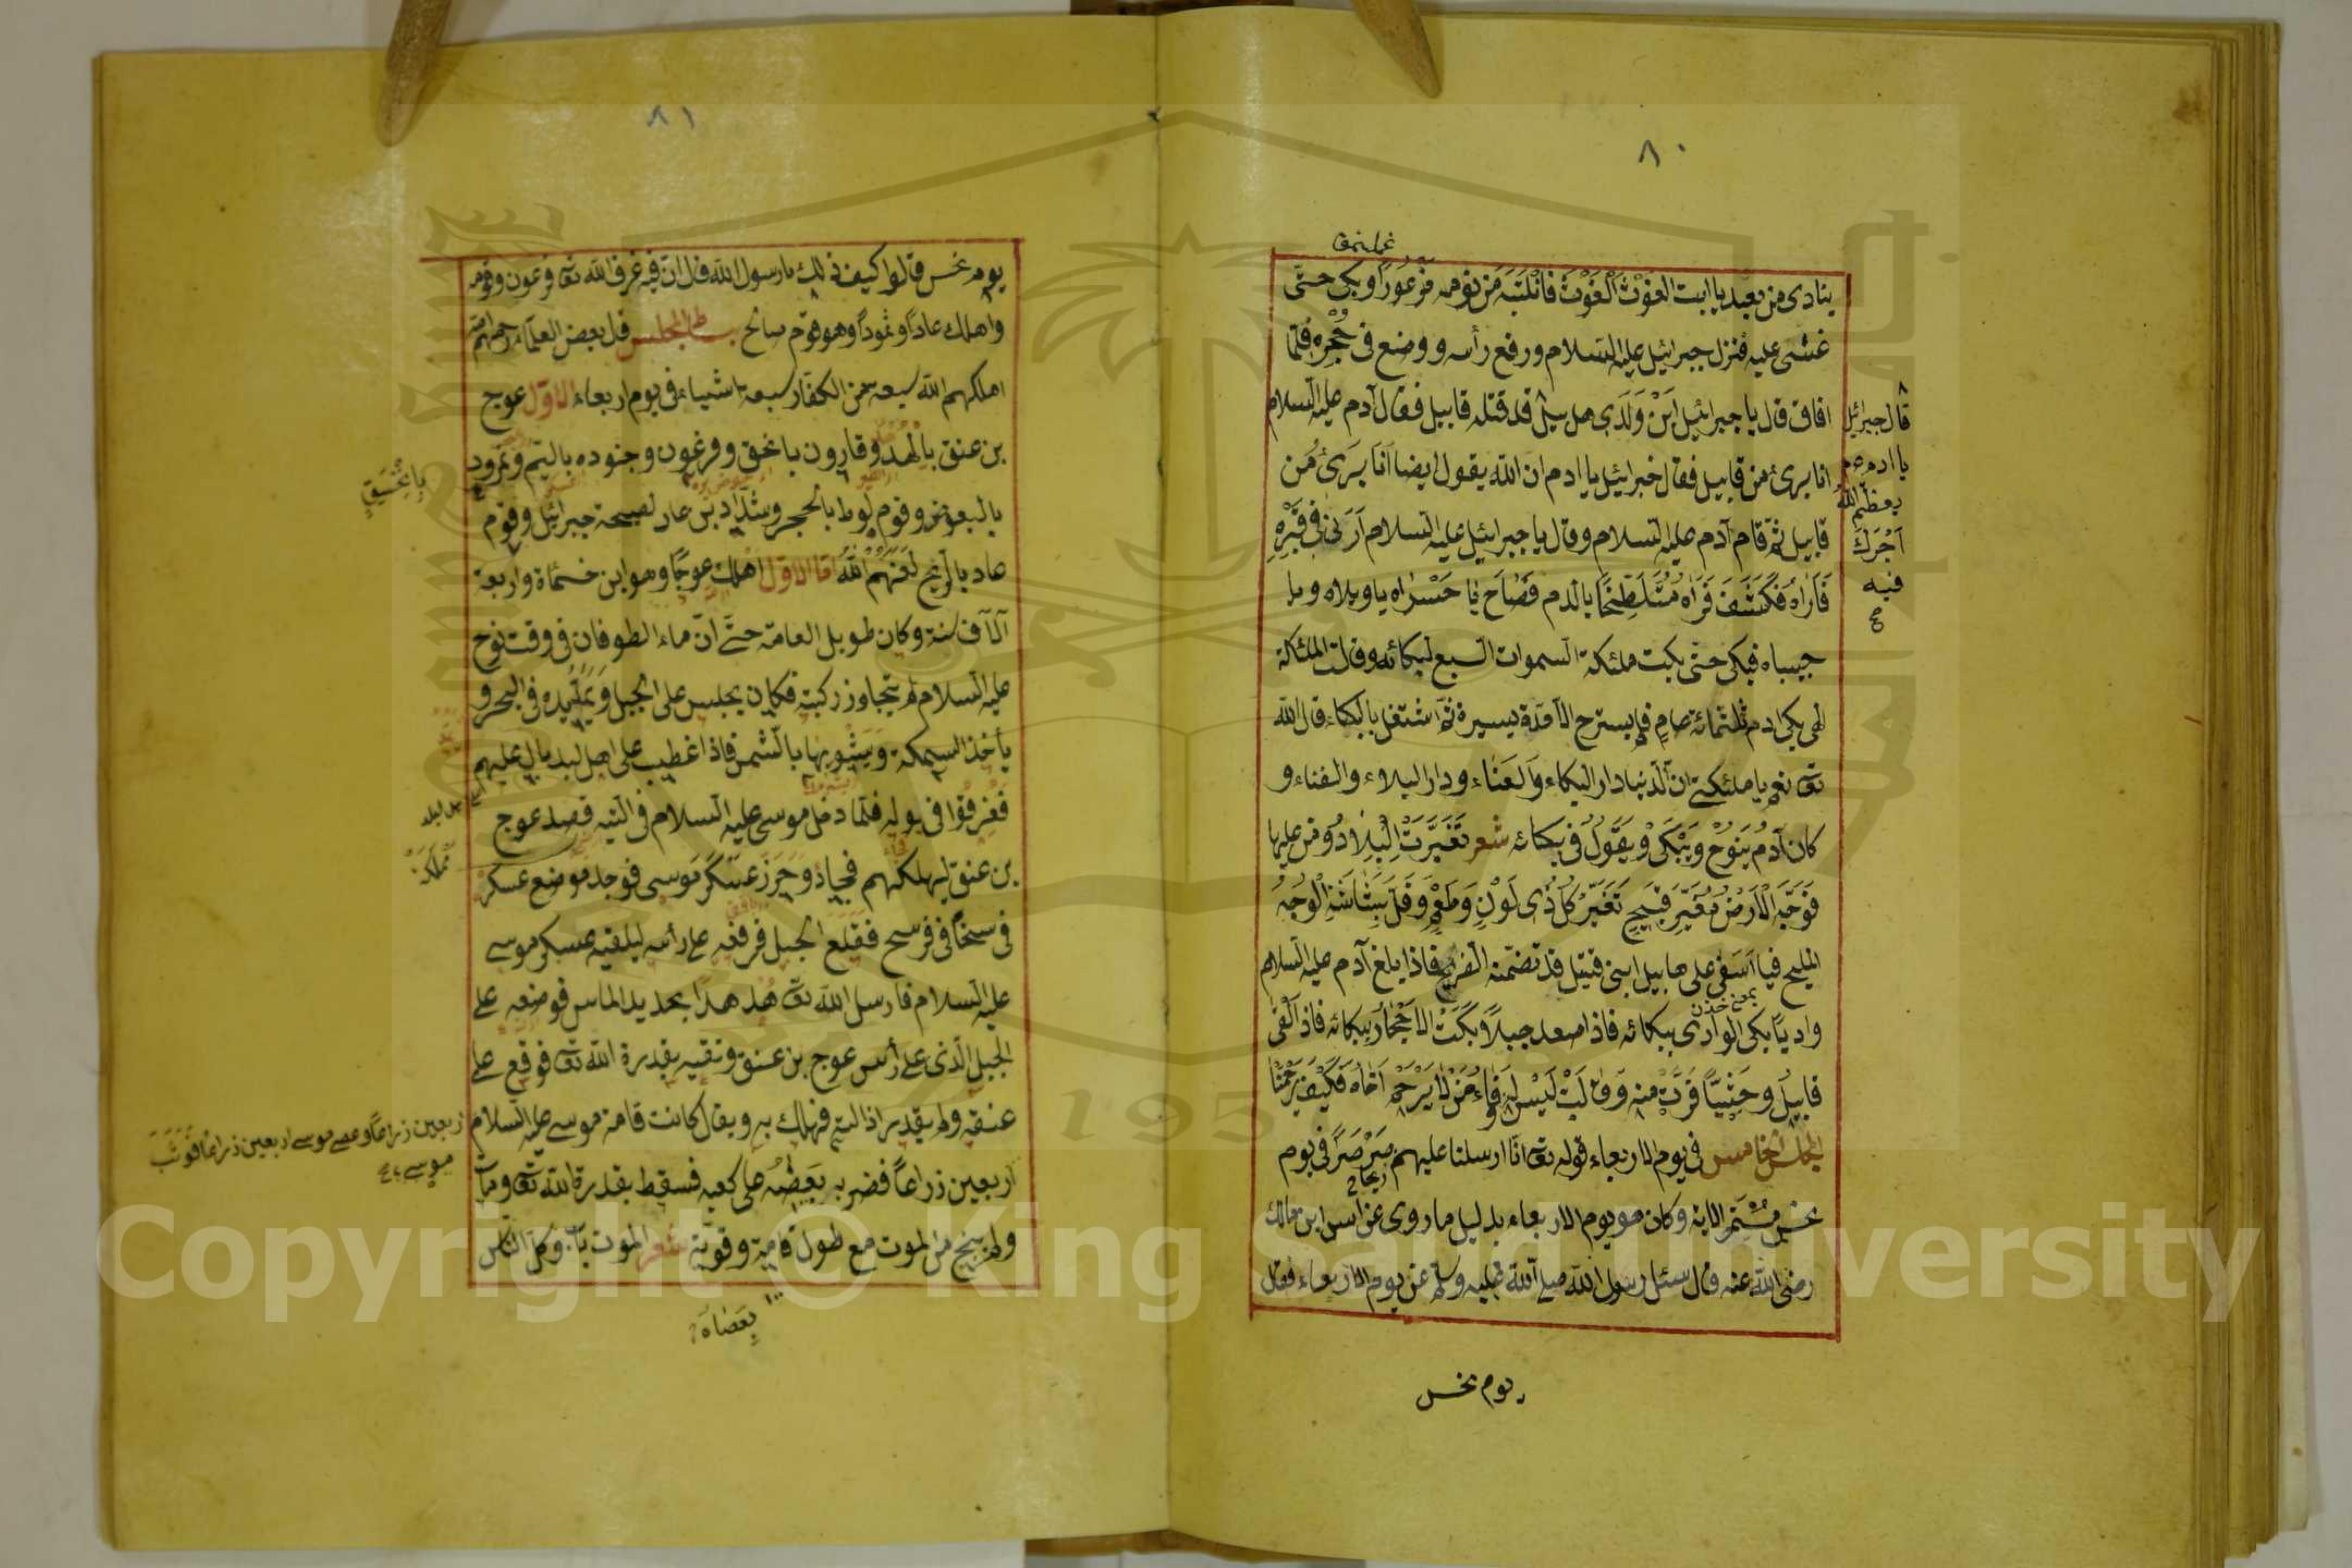 ٨٠
ينادى من بعيد يا ابت الغوث الغوث فانتبه من نومه مزعورا وبكى حتى
غشى عليه فنزل جبرائيل عليه السلام ورفع رأسه ووضع فى حجره فلما
افاق قال يا جبرائيل اين ولدى هابيل قد قتله قابيل فقال آدم عليه السلام
انا برئ من قابيل فقال جبرائيل يا ادم ان الله يقول ايضا انا برئ من
قابيل ثم قام آدم عليه السلام وقال يا جبرائيل عليه السلام ارنى فى قبره
فاراه فكشف فراه متلطخا بالدم فصاح يا حسراه يا ويلاه ويا
حبيباه فبكى حتى بكت ملئكة السموات السبع لبكائه وقالت الملئكة
الهى بكى ادم ثلثمائة عام فلم يسترح الا مدة يسيرة ثم اشتغل بالبكاء قال الله
تعا نعم يا ملئكتى ان الدنيا دار البكاء والعناء ودار البلاء والفناء و
كان آدم ينوح ويبكى ويقول فى بكائه شعر تغيرت البلاد ومن عليها
فوجه الارض مغبر قبيح تغير كل ذى لون وطعم وقل بشاشة الوجه
المليح فيا اسفى على هابيل ابنى قتيل قد تضمنه الضريح فاذا بلغ آدم عليه السلام
واديا بكى الوادى ببكائه فاذا صعد جبلا بكت الاحجار ببكائه فاذا القى
قابيل وحشيا فرت منه وقالت ليس له وفاء من لا يرحم اخاه فكيف يرحمنا
المجلس الخامس فى يوم الاربعاء قوله تعا انا ارسلنا عليهم ريحا صرصرا فى يوم
نحس مستمر الاية وكان هو يوم الاربعاء بدليل ما روى عن انس ابن مالك
رضى الله عنه قال سئل رسول الله صلى الله عليه وسلم عن يوم الاربعاء فقال
يوم نحس
قال جبرائيل
يا ادم
يعظم الله
اجرك
فيه
٨١
يوم نحس قالوا كيف ذلك يا رسول الله قال ان فيه غرق الله تعا فرعون وقومه
واهلك عادا وثمودا وهو قوم صالح بساط المجلس قال بعض العلماء رحمهم الله
اهلكهم الله سبعة من الكفار سبعة اشياء فى يوم اربعاء الاول عوج
بن عنق بالهدهد وقارون بالخسف وفرعون وجنوده باليم ونمرود
بالبعوض وقوم لوط بالحجر وشداد بن عاد لصيحة جبرائيل وقوم
عاد بالريح لعنهم الله اما الاول اهلك عوجا وهو ابن خسمائة واربعة
آلاف سنة وكان طويل القامة حتى ان ماء الطوفان فى وقت نوح
عليه السلام لم يتجاوز ركبته فكان يجلس على الجبل ويمد يده فى البحر و
يأخذ السمكة ويشويها بالشمس فاذا غضب على اهل بلد بال عليهم
فغرقوا فى بوله فلما دخل موسى عليه السلام فى التيه قصد عوج
بن عنق ليهلكهم فجاء وحرز عسكر موسى فوجد موضع عسكره
فرسخا فى فرسخ فقلع الجبل فرفعه على رأسه ليلقيه عسكر موسى
عليه السلام فارسل الله تعا هدهدا بحديد الماس فوضعه على
الجبل الذى على رأس عوج بن عنق ونقبه بقدرة الله تعا فوقع على
عنقه ولم يقدر اذالته فهلك به ويقال كانت قامة موسى عليه السلام
اربعين ذراعا فضربه بعضه على كعبه فسقط بقدرة الله تعا ومات
ولم ينج من الموت مع طول قامته وقوته شعر الموت باب وكل الناس
اربعين ذراعا وعصى موسى اربعين ذراعا فوثب
موسى
بعصاه